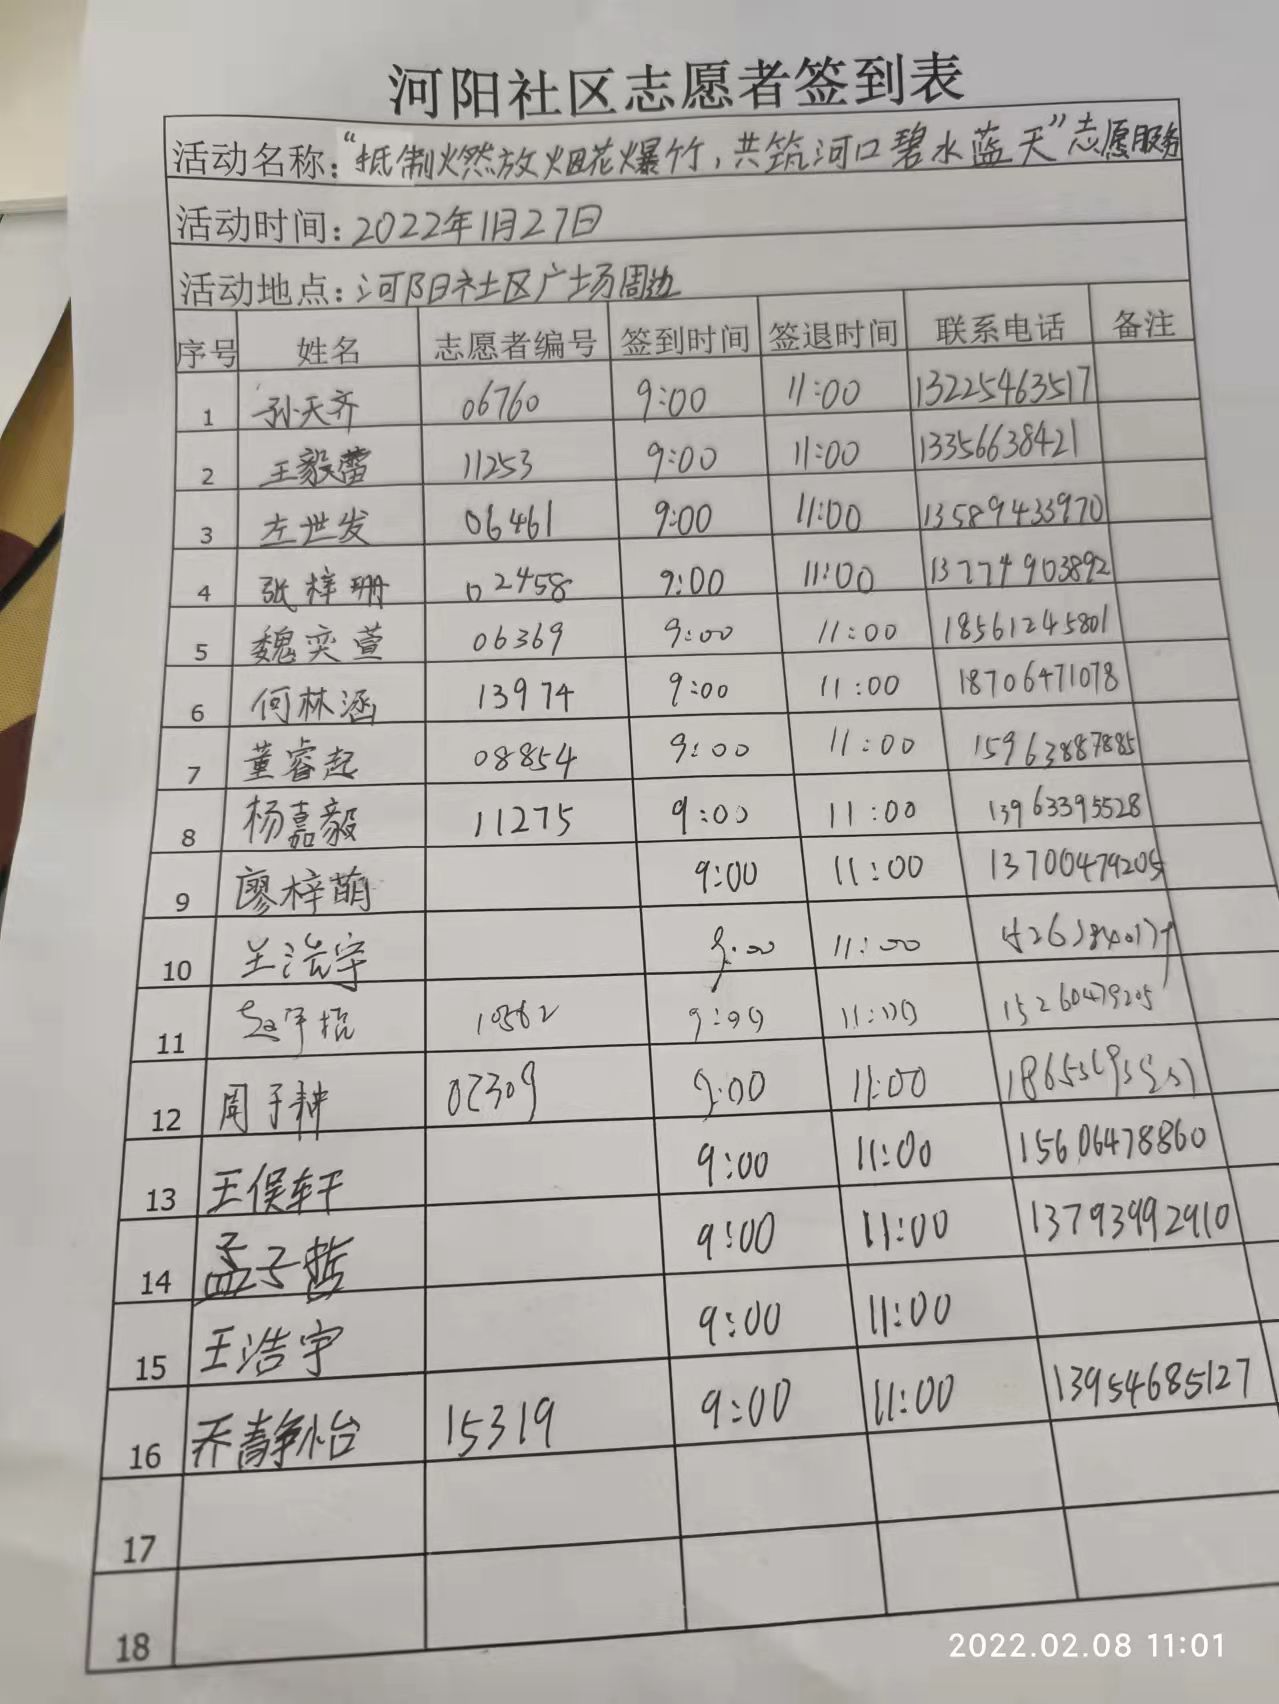 河阳社区志愿者签到表
活动名称:“抵制燃放烟花爆竹,共筑河口碧水蓝天”志愿服务
活动时间:2022年1月27日
活动地点:河阳社区广场周边
序号 姓名 志愿者编号 签到时间 签退时间 联系电话 备注
1 孙天齐 06760 9:00 11:00 13225463517
2 王毅蕾 11253 9:00 11:00 13356638421
3 左世发 06461 9:00 11:00 13589433970
4 张梓珊 02458 9:00 11:00 13774903892
5 魏奕萱 06369 9:00 11:00 18561245801
6 何林涵 13974 9:00 11:00 18706471078
7 董睿起 08854 9:00 11:00 15963887885
8 杨嘉毅 11275 9:00 11:00 13963395528
9 廖梓萌 9:00 11:00 13700479205
10 9:00 11:00
11 9:00 11:00 15260479205
12 周子耕 02309 9:00 11:00
13 王俣轩 9:00 11:00 15606478860
14 孟子哲 9:00 11:00 13793992910
15 王浩宇 9:00 11:00
16 乔静怡 15319 9:00 11:00 13954685127
17
18
2022.02.08 11:01